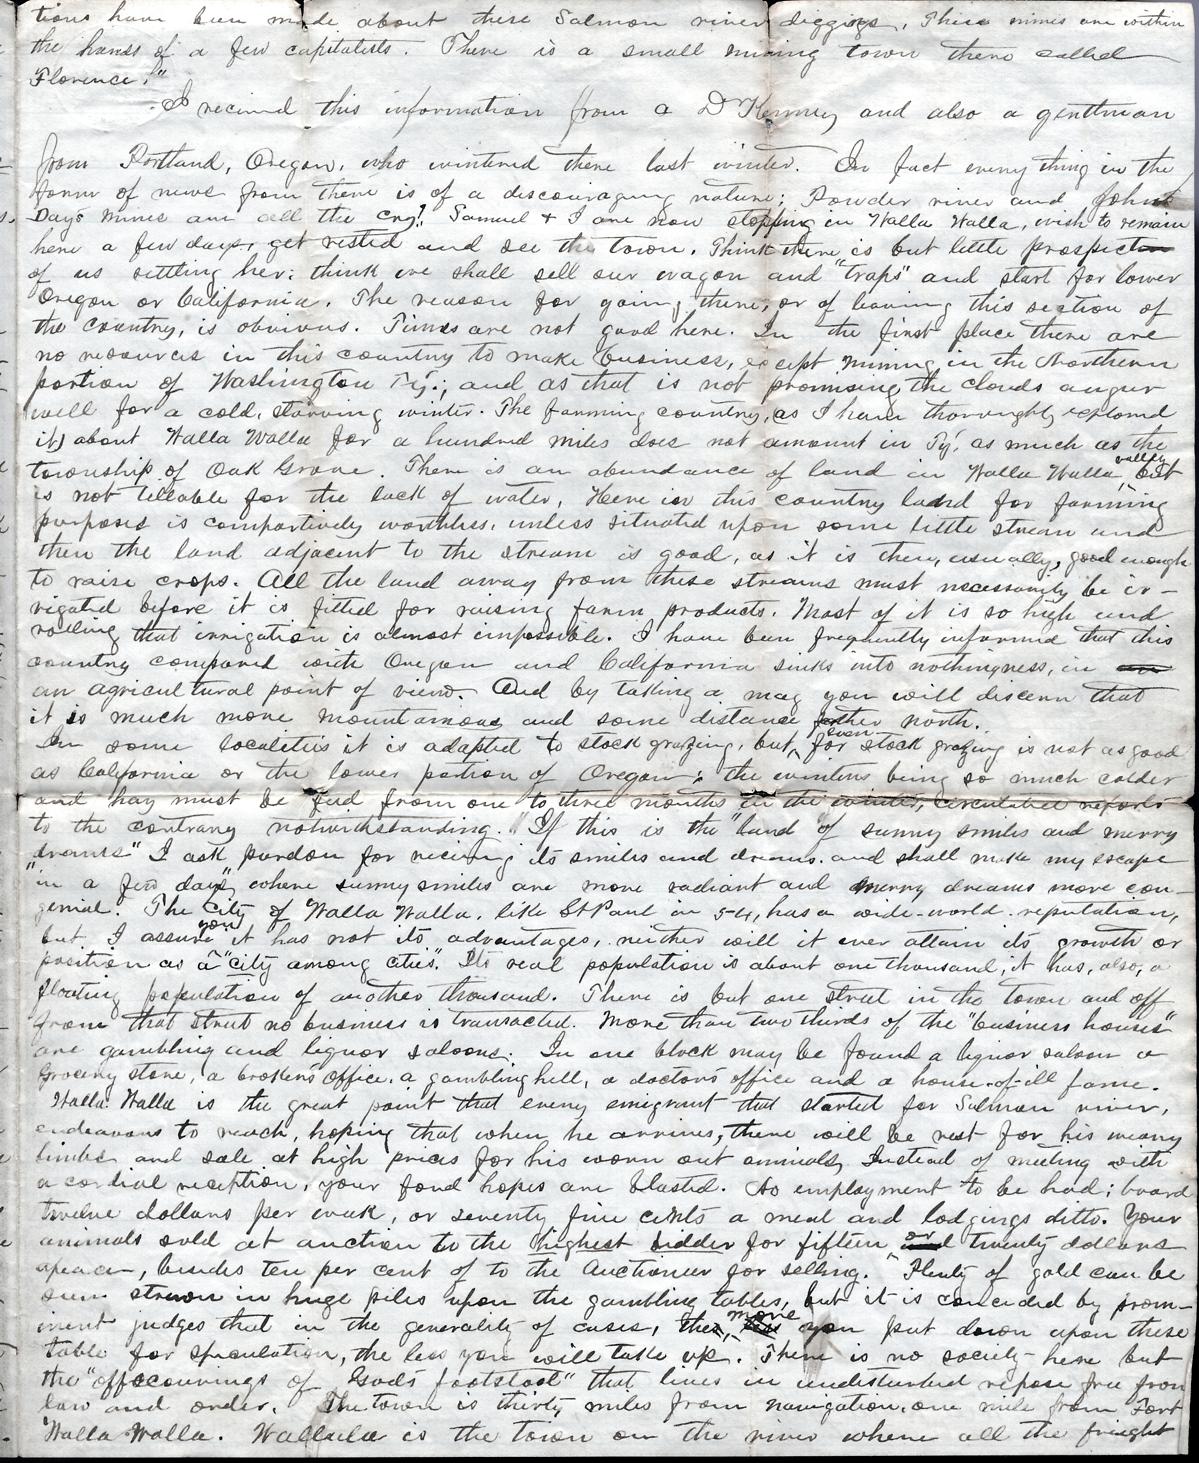 tions have been made about these Salmon river diggings. These mines are within
the hands of a few capitalists. There is a small mining town there called
"Florence."
I recieved this information from a Dr Kenney and also a gentman
from Portland, Oregon, who wintered there last winter. In fact every thing in the
form of news from there is of a discouraging nature; Powder river and John
Day's mines are all the cry! Samuel & I are now stopping in Walla Walla, wish to remain
here a few days, get rested and see the town. Think there is but little prospect
of us settling her: think we shall sell our wagon and "traps" and start for lower
Oregon or California. The reason for going there, or of leaving this section of
the country, is obvious. Times are not good here. In the first place there are
no resources in this country to make business, except mining in the Northern
portion of Washington Ty.; and as that is not promising the clouds augur
well for a cold, starving winter. The farming country, as I have thoroughly explored
it) about Walla Walla for a hundred miles does not amount in Ty. as much as the
township of Oak Grove. There is an abundance of land in Walla Walla valley but
is not tillable for the lack of water. Here in this country land for farming
purposes is compartively worthless, unless situated upon some little stream and
then the land adjacent to the stream is good, as it is then, usually, good enough
to raise crops. All the land away from these streams must necessarily be ir-
rigated before it is fitted for raising farm products. Most of it is so high and
rolling that irrigation is almost impossible. I have been frequently informed that this
country compared with Oregon and California sinks into nothingness, in
an agricultural point of view. And by taking a map you will discern that
it is much more mountainous and some distance further north.
In some localities it is adapted to stock grazing, but even for stock grazing is not as good
as California or the lower portion of Oregon; the winters being so much colder
and hay must be fed from one to three months in the winter, circulated reports
to the contrary notwithstanding. If this is the "land of sunny smiles and merry
dreams" I ask pardon for recieving its smiles and dreams. and shall make my escape
"in a few days", where sunny smiles are more radiant and merry dreams more con-
genial. The city of Walla Walla, like St Paul in 54, has a wide-world reputation,
but I assure you it has not its advantages, neither will it ever attain its growth or
position as a "city among cties". Its real population is about one thousand; it has, also, a
floating population of another thousand. There is but one street in the town and off
from that street no business is transacted. More than two thirds of the "business houses"
are gambling and liquor saloons. In one block may be found a liquor saloon a
Grocery store, a brokers office, a gambling hell, a doctors office and a house-of-ill fame.
Walla Walla is the great point that every emigrant that started for Salmon river,
endeavors to reach, hoping that when he arrives, there will be rest for his weary
limbs and sale at high prices for his worn out animals, Instead of meeting with
a cordial reception, your fond hopes are blasted. No employment to be had; board
twelve dollars per week, or seventy five cents a meal and lodgings ditto. Your
animals sold at auction to the highest bidder for fifteen or twenty dollars
apeace, besides ten per cent of to the Auctioneer for selling. Plenty of gold can be
seen strewn in huge piles upon the gambling tables, but it is conceded by prom-
inent judges that in the generality of cases, the more you put down upon these
table for speculation, the less you will take up. There is no society here but
the "offscourings of Gods footstool" that lives in undisturbed repose free from
law and order. The town is thirty miles from navigation, one mile from Fort
Walla Walla. Wallula is the town on the river where all the freight